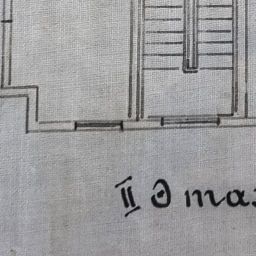 II Этаж